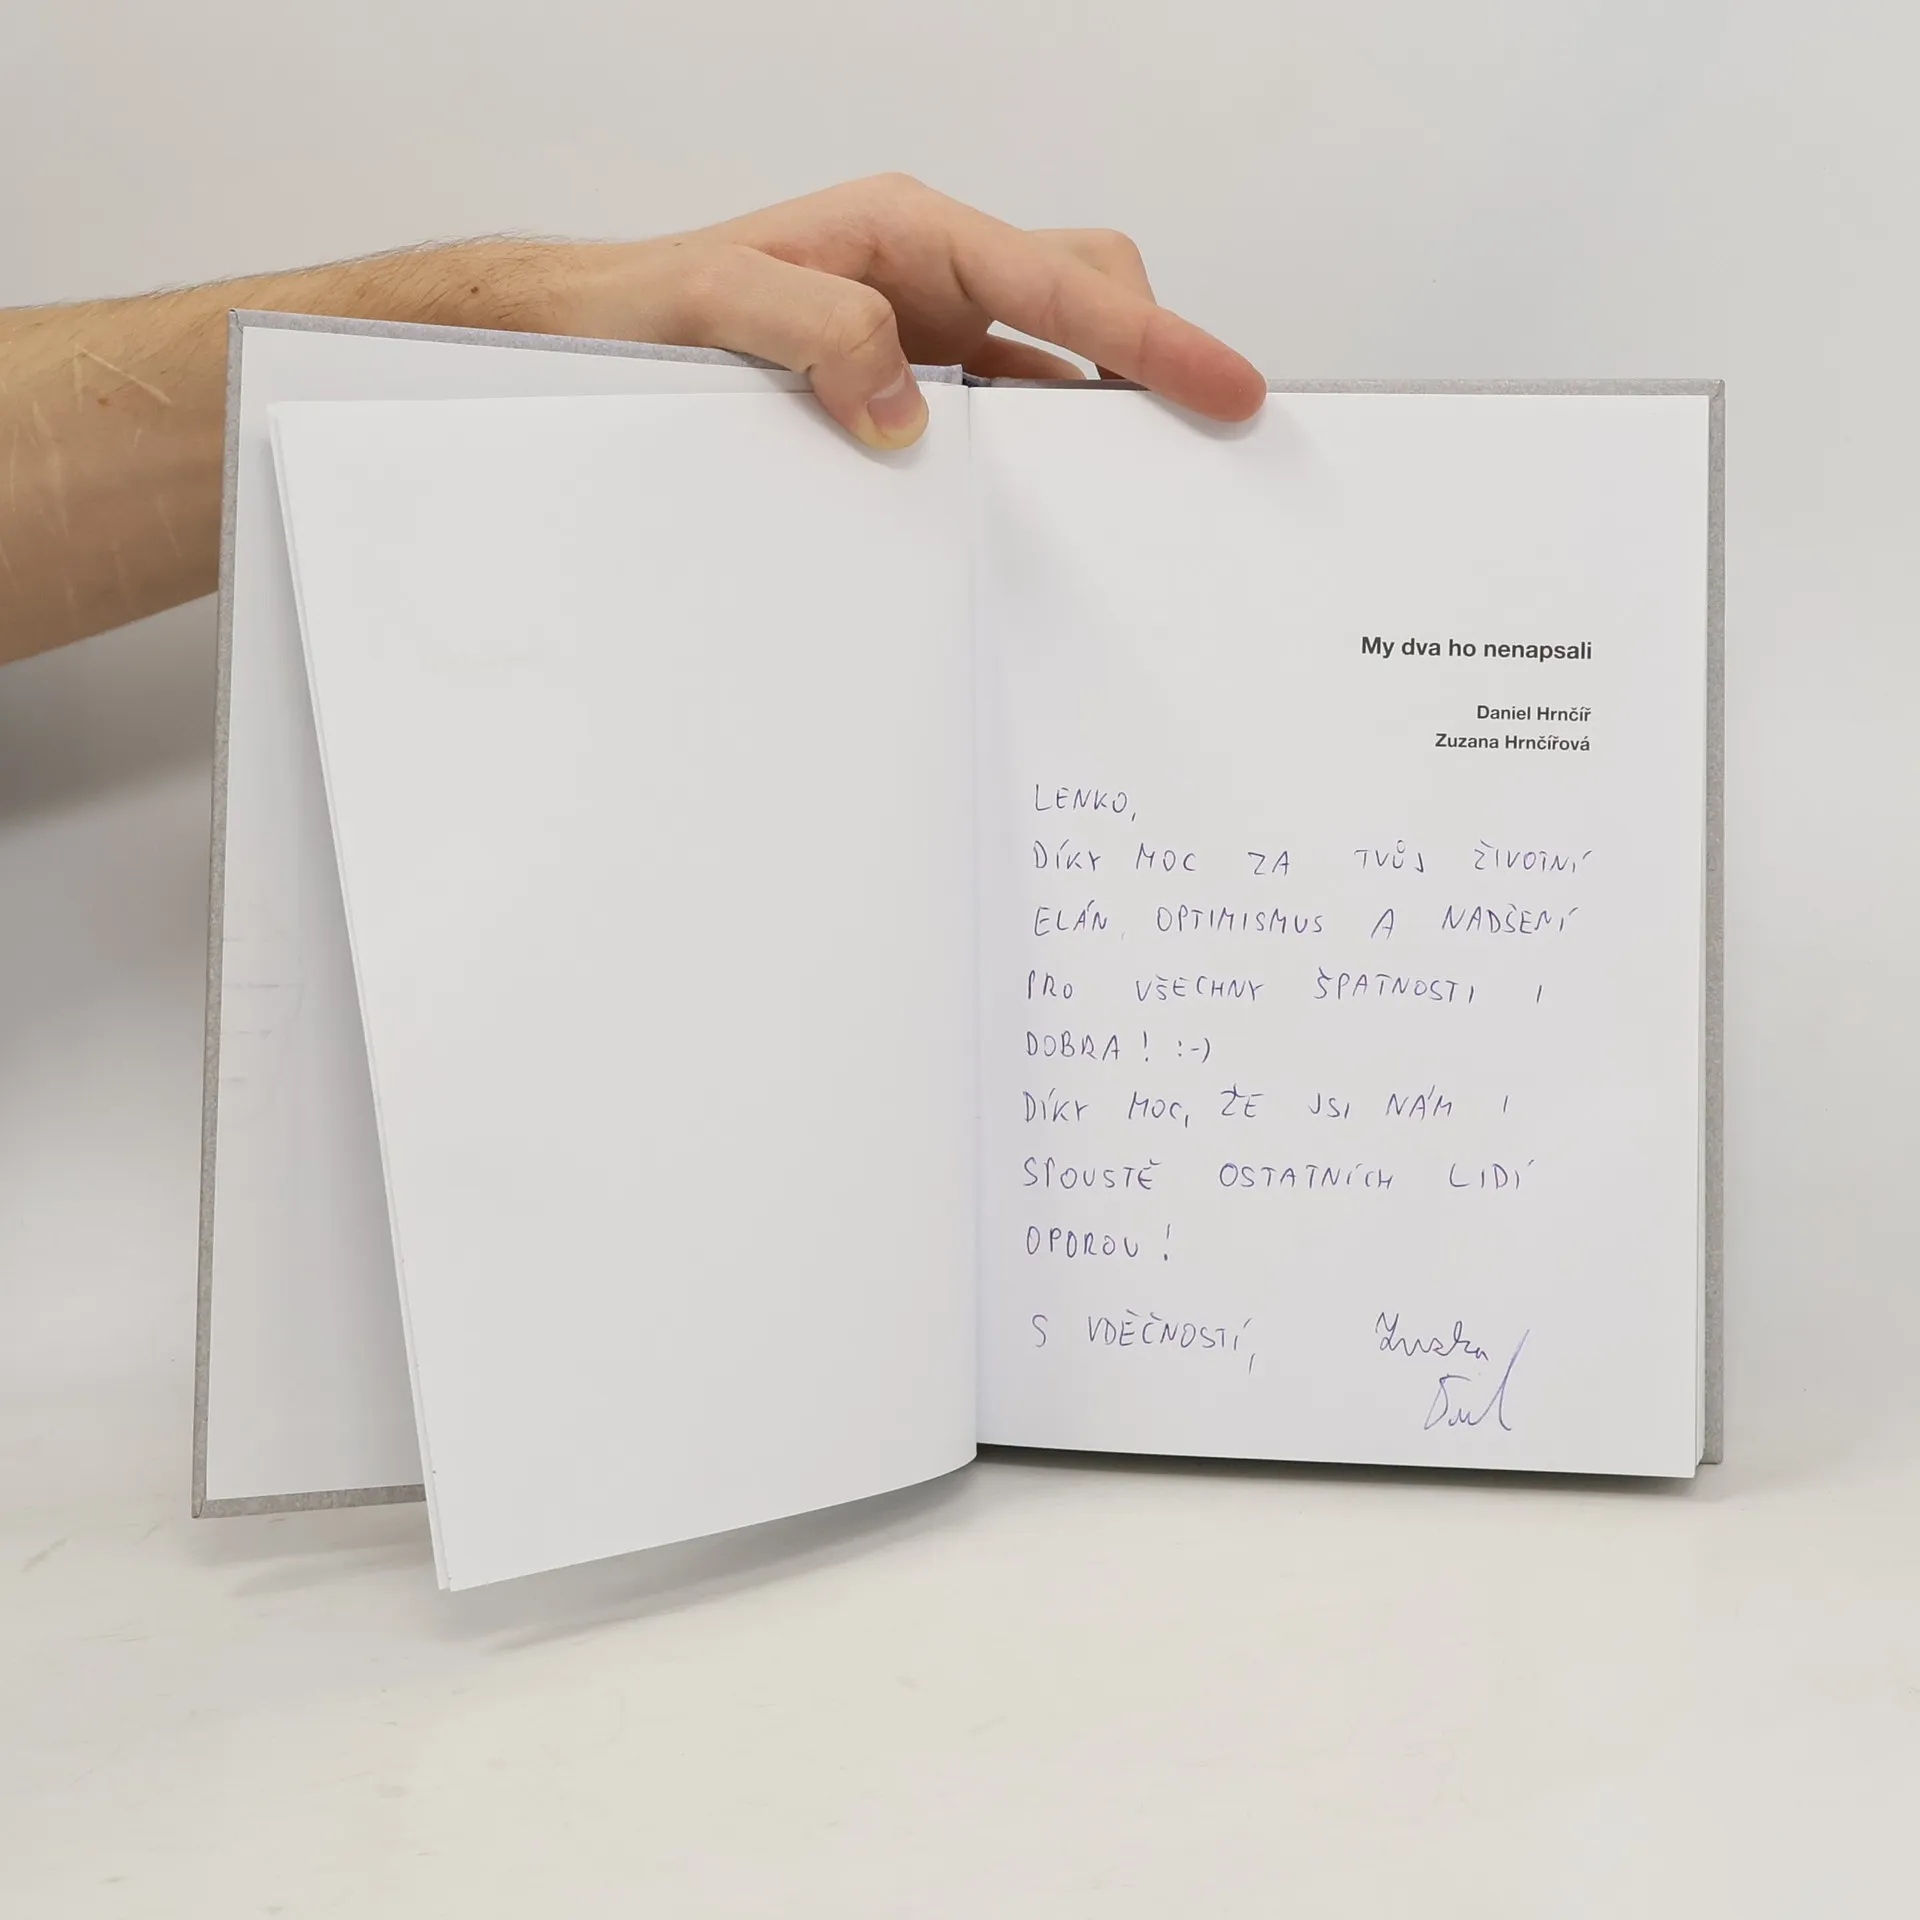 My dva ho nenapsali
Daniel Hrnčíř
Zuzana Hrnčířová
LENKO,
DÍKY MOC ZA TVŮJ ŽIVOTNÍ
ELÁN, OPTIMISMUS A NADŠENÍ
PRO VŠECHNY ŠPATNOSTI I
DOBRA! :-)
DÍKY MOC, ŽE JSI NÁM I
SPOUSTĚ OSTATNÍCH LIDÍ
OPOROU!
S VDĚČNOSTÍ, Zuzka